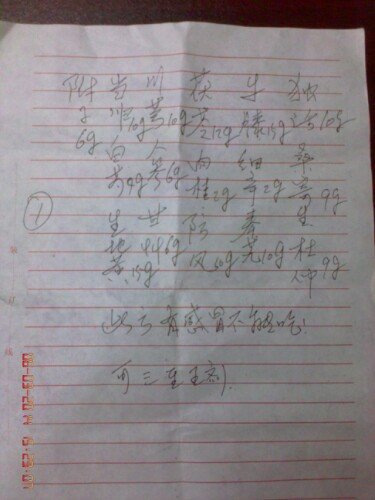 附子6g 当归10g 川芎10g 茯苓12g 牛膝15g 独活10g
白芍9g 人参6g 肉桂2g 细辛2g 桑寄生9g
①
生地黄15g 甘草6g 防风 秦艽10g 杜仲9g
此方有感冒不能吃!
可三